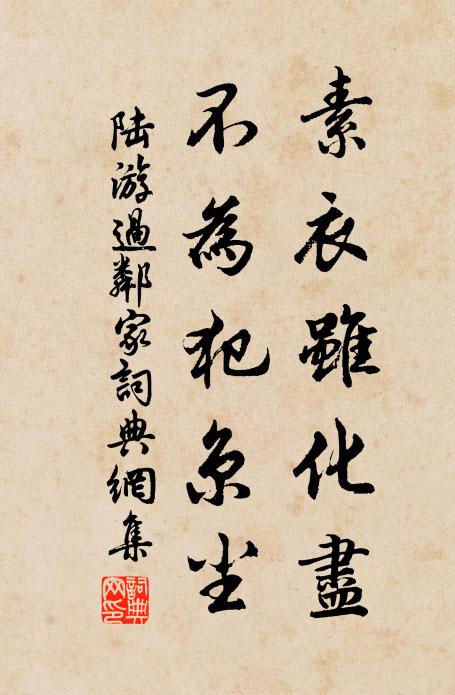 素衣雖化盡
不為犯京坐
陸游過鄰家詞典網集
詞典網印